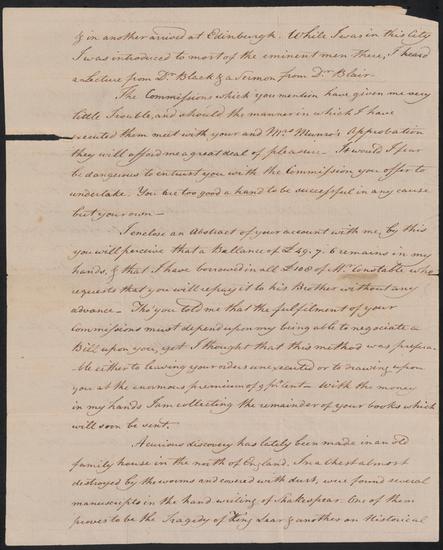 & in another arrived at Edinburgh. While I was in this City
I was introduced to most of the eminent men there, I heard
a Lecture from Dr. Black & a Sermon from Dr. Blair.
The Commissions which you mention have given me very
little Trouble, and should the manner in which I have
executed them meet with your and Mrs. Munro's Approbation
they will afford me a great deal of pleasure - It would I fear
be dangerous to entrust you with the Commission you offer to
undertake. You are too good a hand to be successful in any cause
but your own -
I enclose an Abstract of your account with me, by this
you will perceive that a Ballance of £49.7.6 remains in my
hands, & that I have borrowed in all £108 of Mr. Constable who
requests that you will repay it to his Brother without any
advance - Tho' you told me that the fulfilment of your
Commissions must depend upon my being able to negociate a
Bill upon you, yet I thought that this method was prefera-
ble either to leaving your orders unexecuted or to drawing upon
you at the enormous premium of 9 pr Cent - With the money
in my hands I am collecting the remainder of your books which
will soon be sent -
A curious discovery has lately been made in an old
family house in the north of England. In a Chest almost
destroyed by the worms and covered with dust, were found several
manuscripts in the hand writing of Shakespear. One of them
proves to be the Tragedy of King Lear & another an Historical